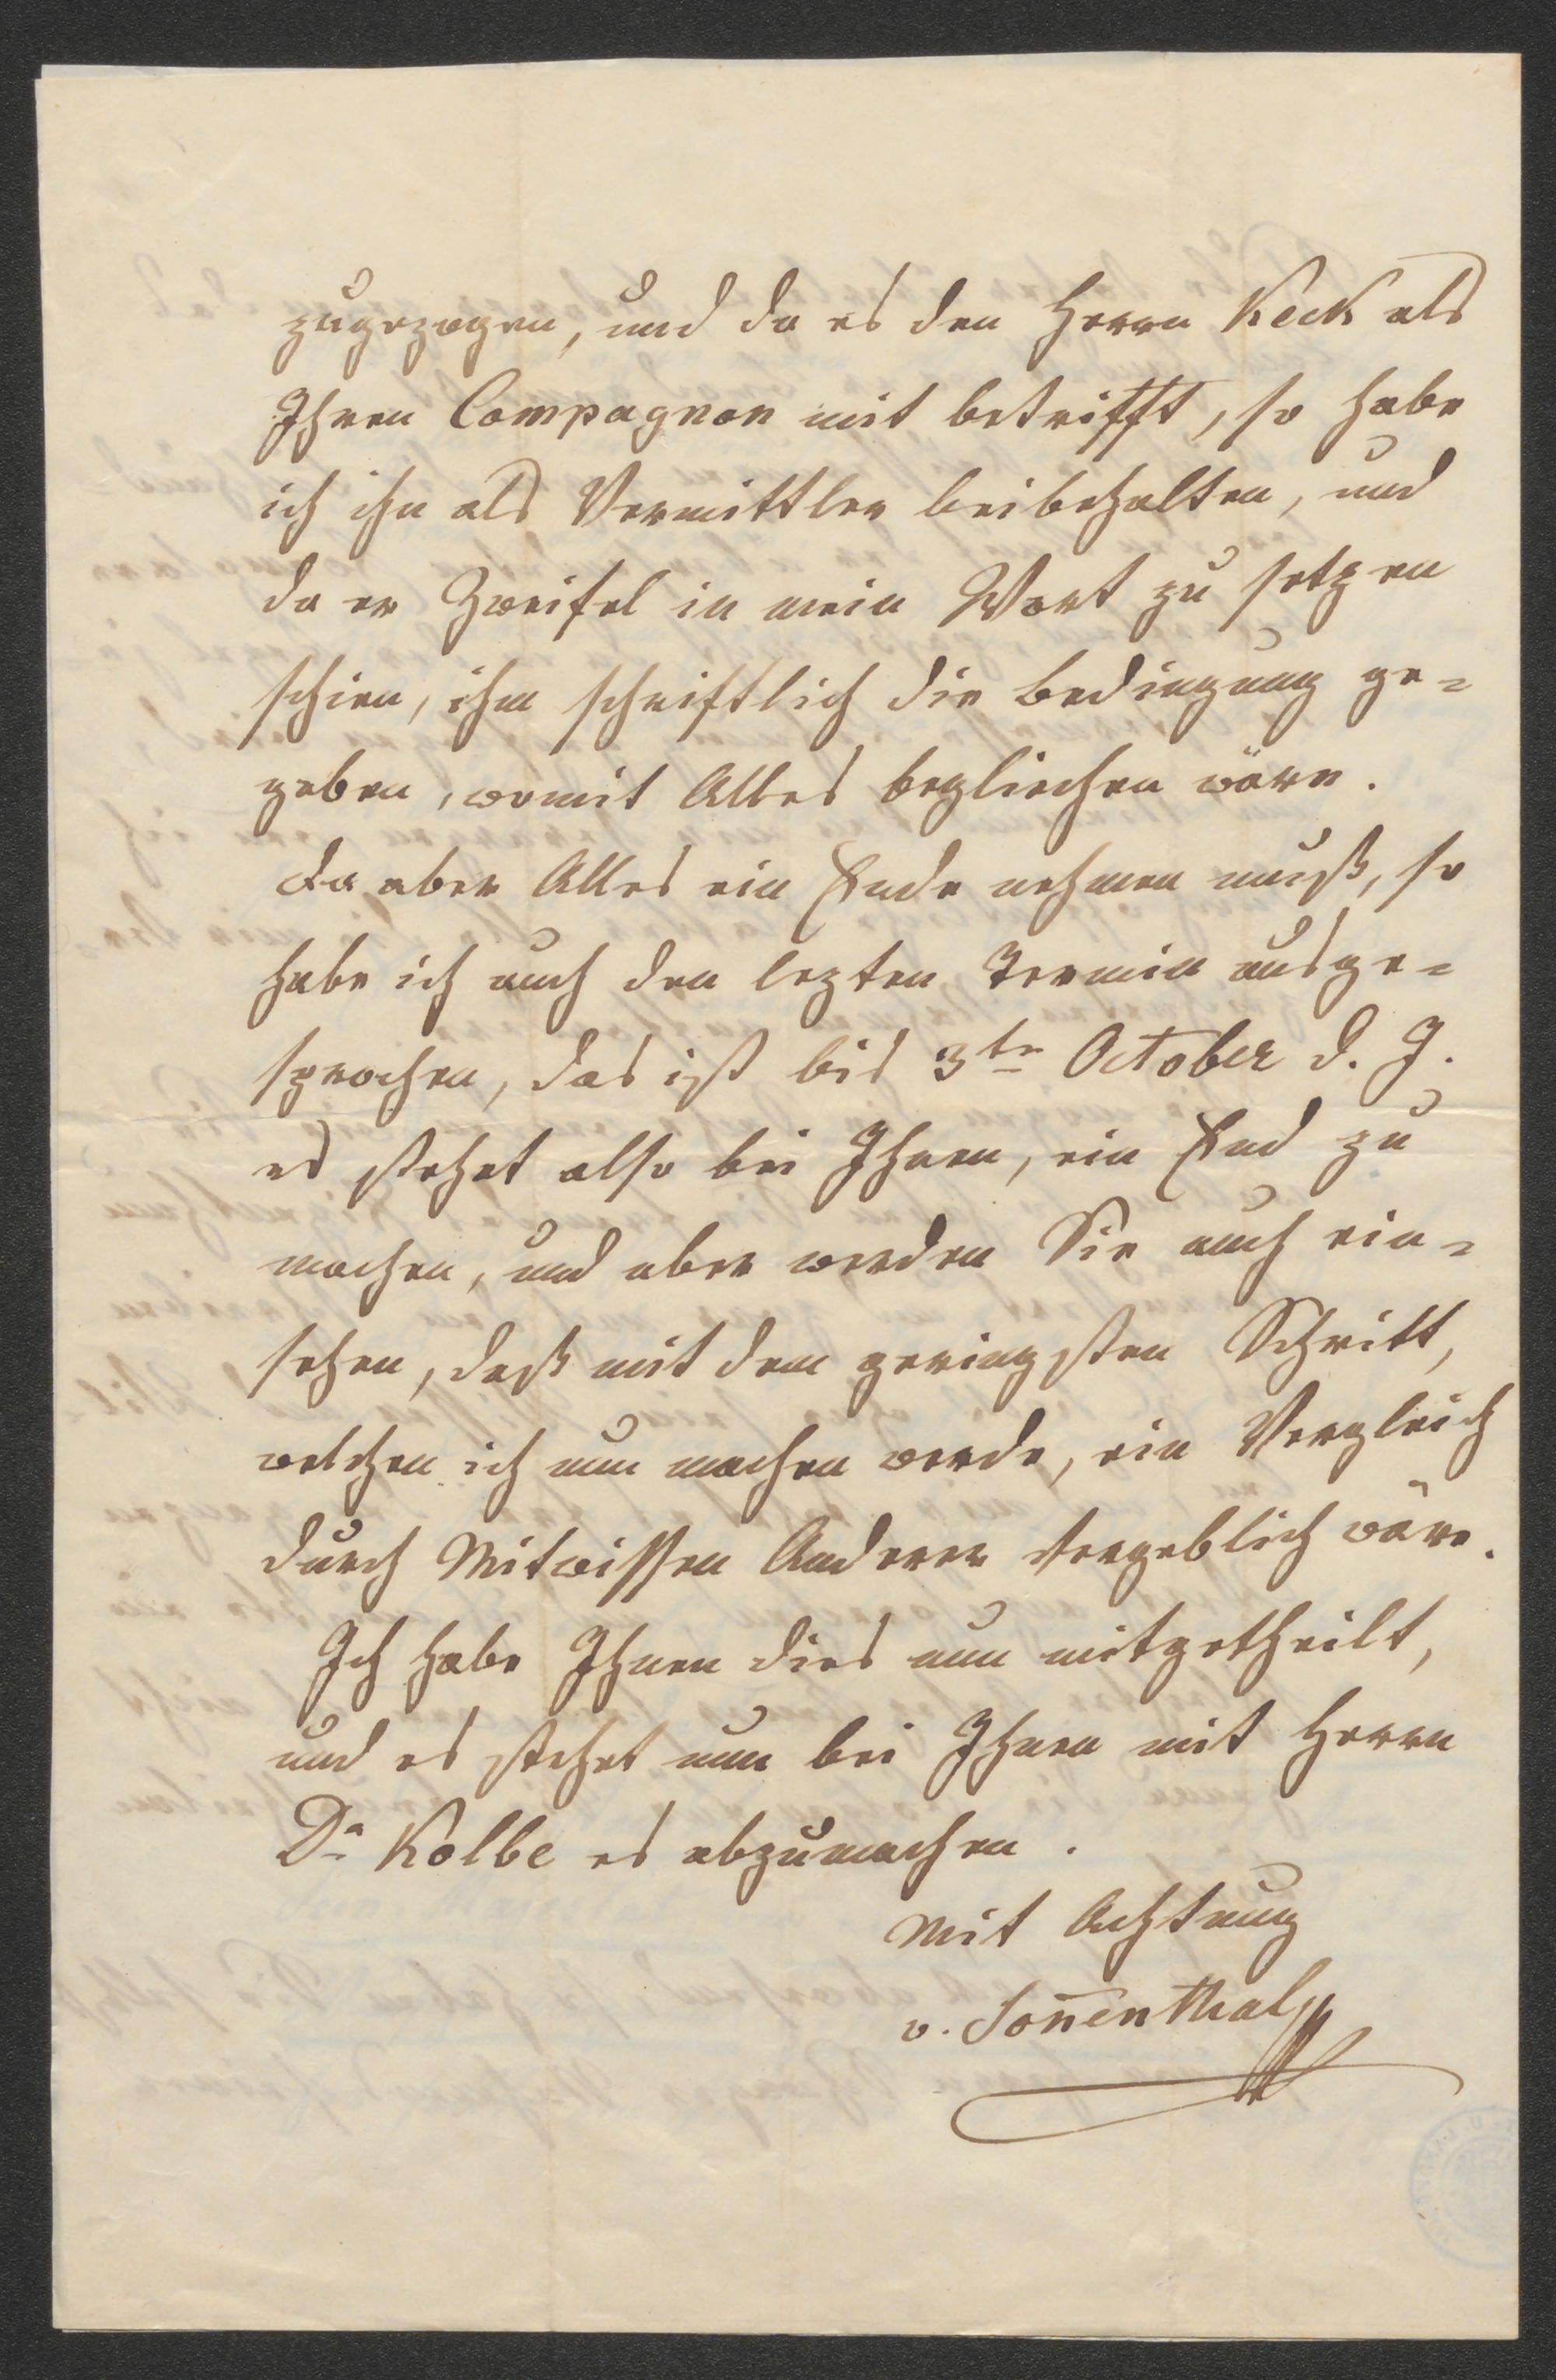 zugezogen, und da es den Herrn Keck als
Ihren Compagnon mit betrifft, so habe
ich ihn als Vermittler beibehalten, und
da er Zweifel in mein Wort zu setzen
schien, ihm schriftlich die Bedingung ge=
geben, womit Alles beglichen wäre.
Da aber Alles ein Ende nehmen muß, so
habe ich auch den lezten Termin ausge=
sprochen, das ist bis 3te October d. J.
es stehet also bei Ihnen, ein End zu
machen, und aber werden Sie auch ein=
sehen, daß mit dem geringsten Schritt,
welchen ich nun machen werde, ein Vergleich
durch Mitwissen Anderer vergeblich wäre.
Ich habe Ihnen dies nun mitgetheilt,
und es stehet nun bei Ihnen mit Herrn
Dr Kolbe es abzumachen.
Mit Achtung
v. Son̄enthal